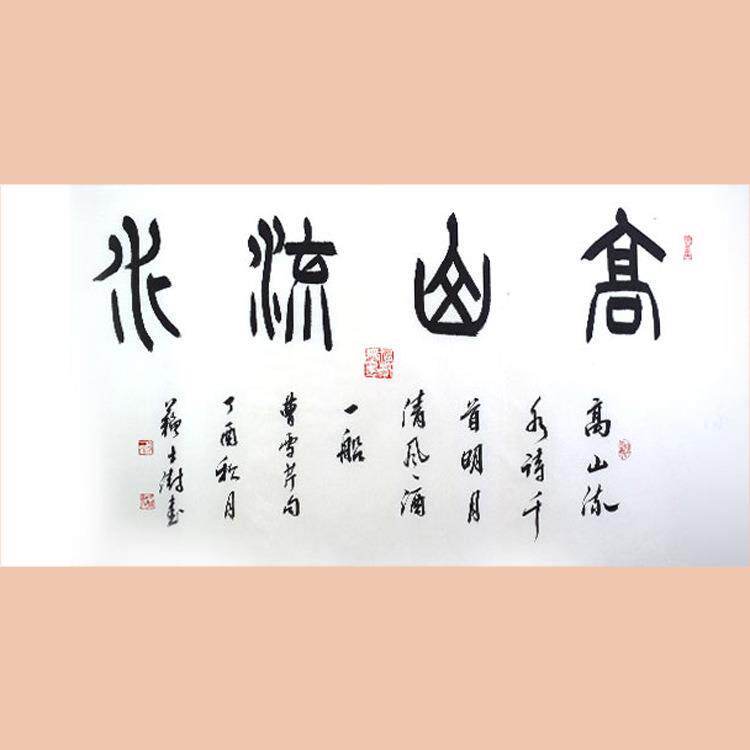 高山流水
高山流
水詩千
首明月
清風酒
一船
曹雪芹句
丁酉秋月
蘇士澍書